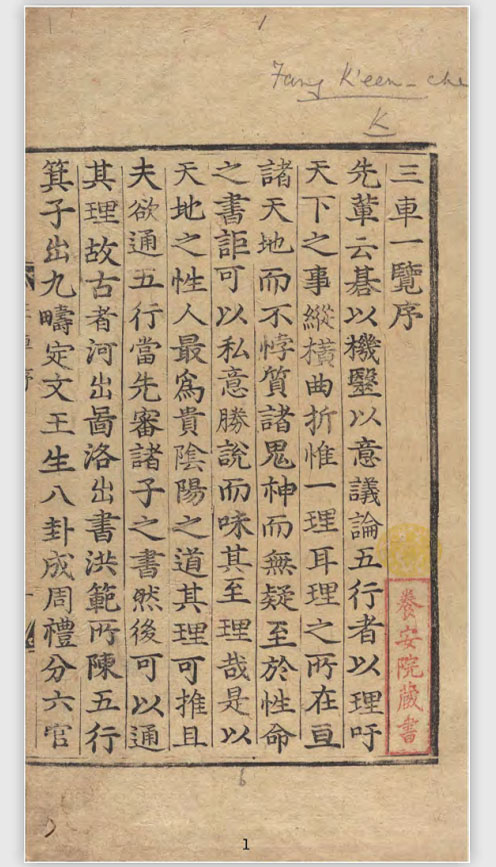 Fang K'een-che
K
三車一覽序
先輩云碁以機毉以意議論五行者以理吁
天下之事縱橫曲折惟一理耳理之所在亘
諸天地而不悖質諸鬼神而無疑至於性命
之書詎可以私意勝說而味其至理哉是以
天地之性人最爲貴陰陽之道其理可推且
夫欲通五行當先審諸子之書然後可以通
其理故古者河出啚洛出書洪範所陳五行
箕子出九疇定文王生八卦成周禮分六官
養安院藏書
1